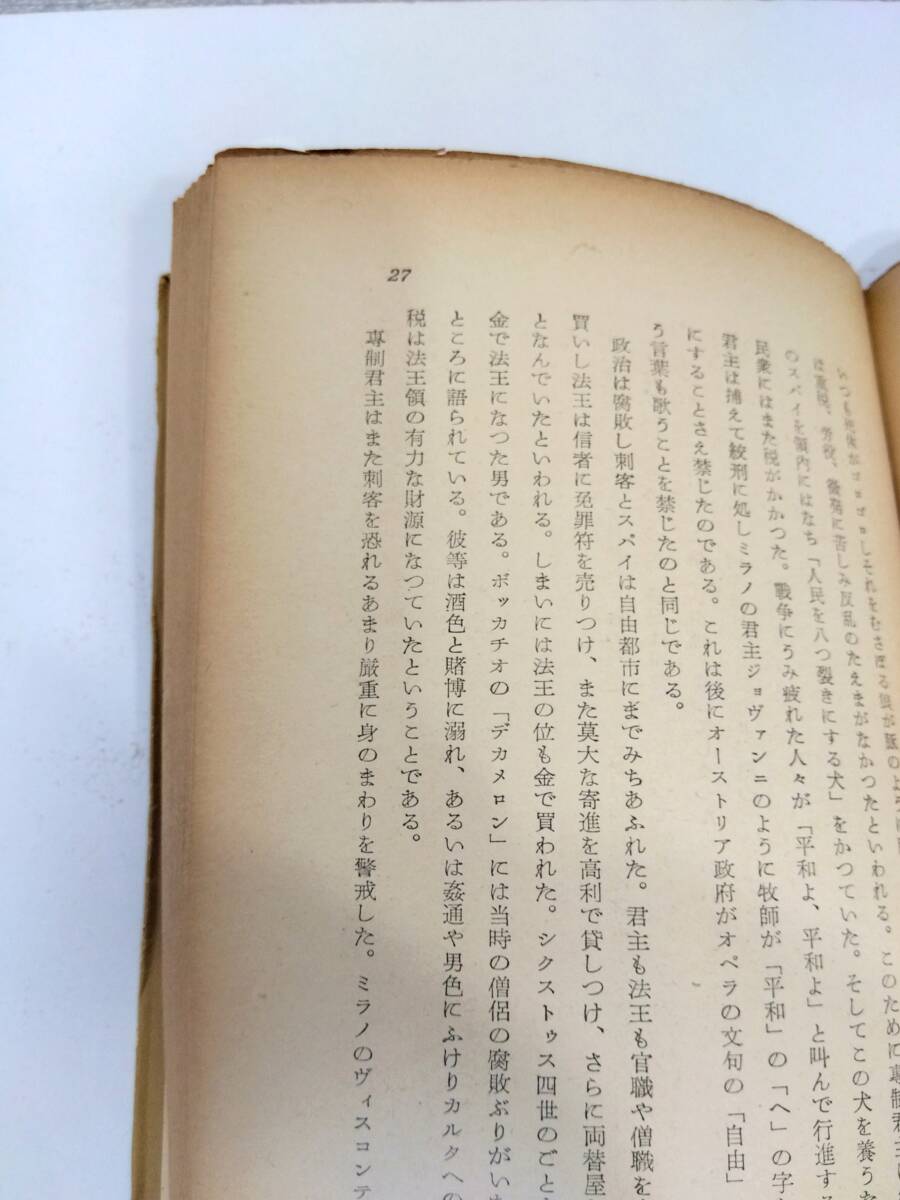 27
は重税、労役、徴発に苦しみ反乱のたえまがなかつたといわれる。このために専制君主は
のスパイを領内にはなち「人民を八つ裂きにする犬」をかつていた。そしてこの犬を養う
民衆にはまた税がかかつた。戦争にうみ疲れた人々が「平和よ、平和よ」と叫んで行進する
君主は捕えて絞刑に処しミラノの君主ジョヴァンニのように牧師が「平和」の「へ」の字
にすることさえ禁じたのである。これは後にオーストリア政府がオペラの文句の「自由」
う言葉も歌うことを禁じたのと同じである。
政治は腐敗し刺客とスパイは自由都市にまでみちあふれた。君主も法王も官職や僧職を
買いし法王は信者に免罪符を売りつけ、また莫大な寄進を高利で貸しつけ、さらに両替屋
となんでいたといわれる。しまいには法王の位も金で買われた。シクストゥス四世のごと
金で法王になつた男である。ボッカチオの「デカメロン」には当時の僧侶の腐敗ぶりがい
ところに語られている。彼等は酒色と賭博に溺れ、あるいは姦通や男色にふけりカルタへの
税は法王領の有力な財源になつていたということである。
専制君主はまた刺客を恐れるあまり厳重に身のまわりを警戒した。ミラノのヴィスコンテ